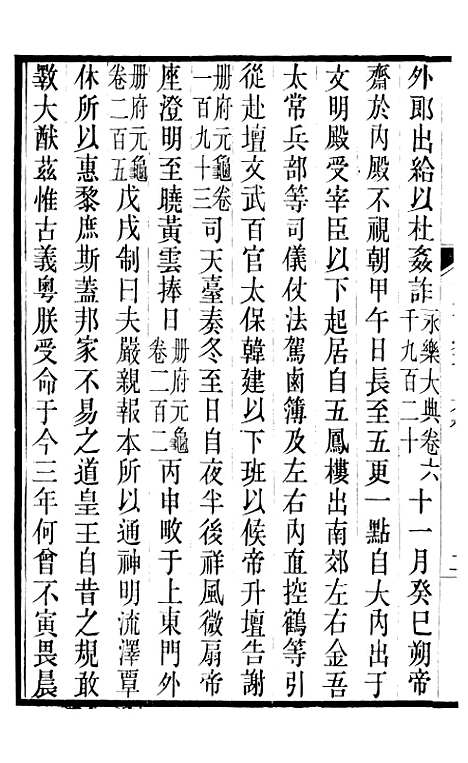 外郎出給以杜姦詐永樂大典卷六千九百二十十一月癸巳朔帝
齋於內殿不視朝甲午日長至五更一點自大內出于
文明殿受宰臣以下起居自五鳳樓出南郊左右金吾
太常兵部等司儀仗法駕鹵簿及左右內直控鶴等引
從赴壇文武百官太保韓建以下班以候帝升壇告謝
冊府元龜卷一百九十三司天臺奏冬至日自夜半後祥風微扇帝
座澄明至曉黃雲捧日冊府元龜卷二百二丙申畋于上東門外
冊府元龜卷二百五戊戌制曰夫嚴親報本所以通神明流澤覃
休所以惠黎庶斯蓋邦家不易之道皇王自昔之規敢
斁大猷茲惟古義粵朕受命于今三年何曾不寅畏晨